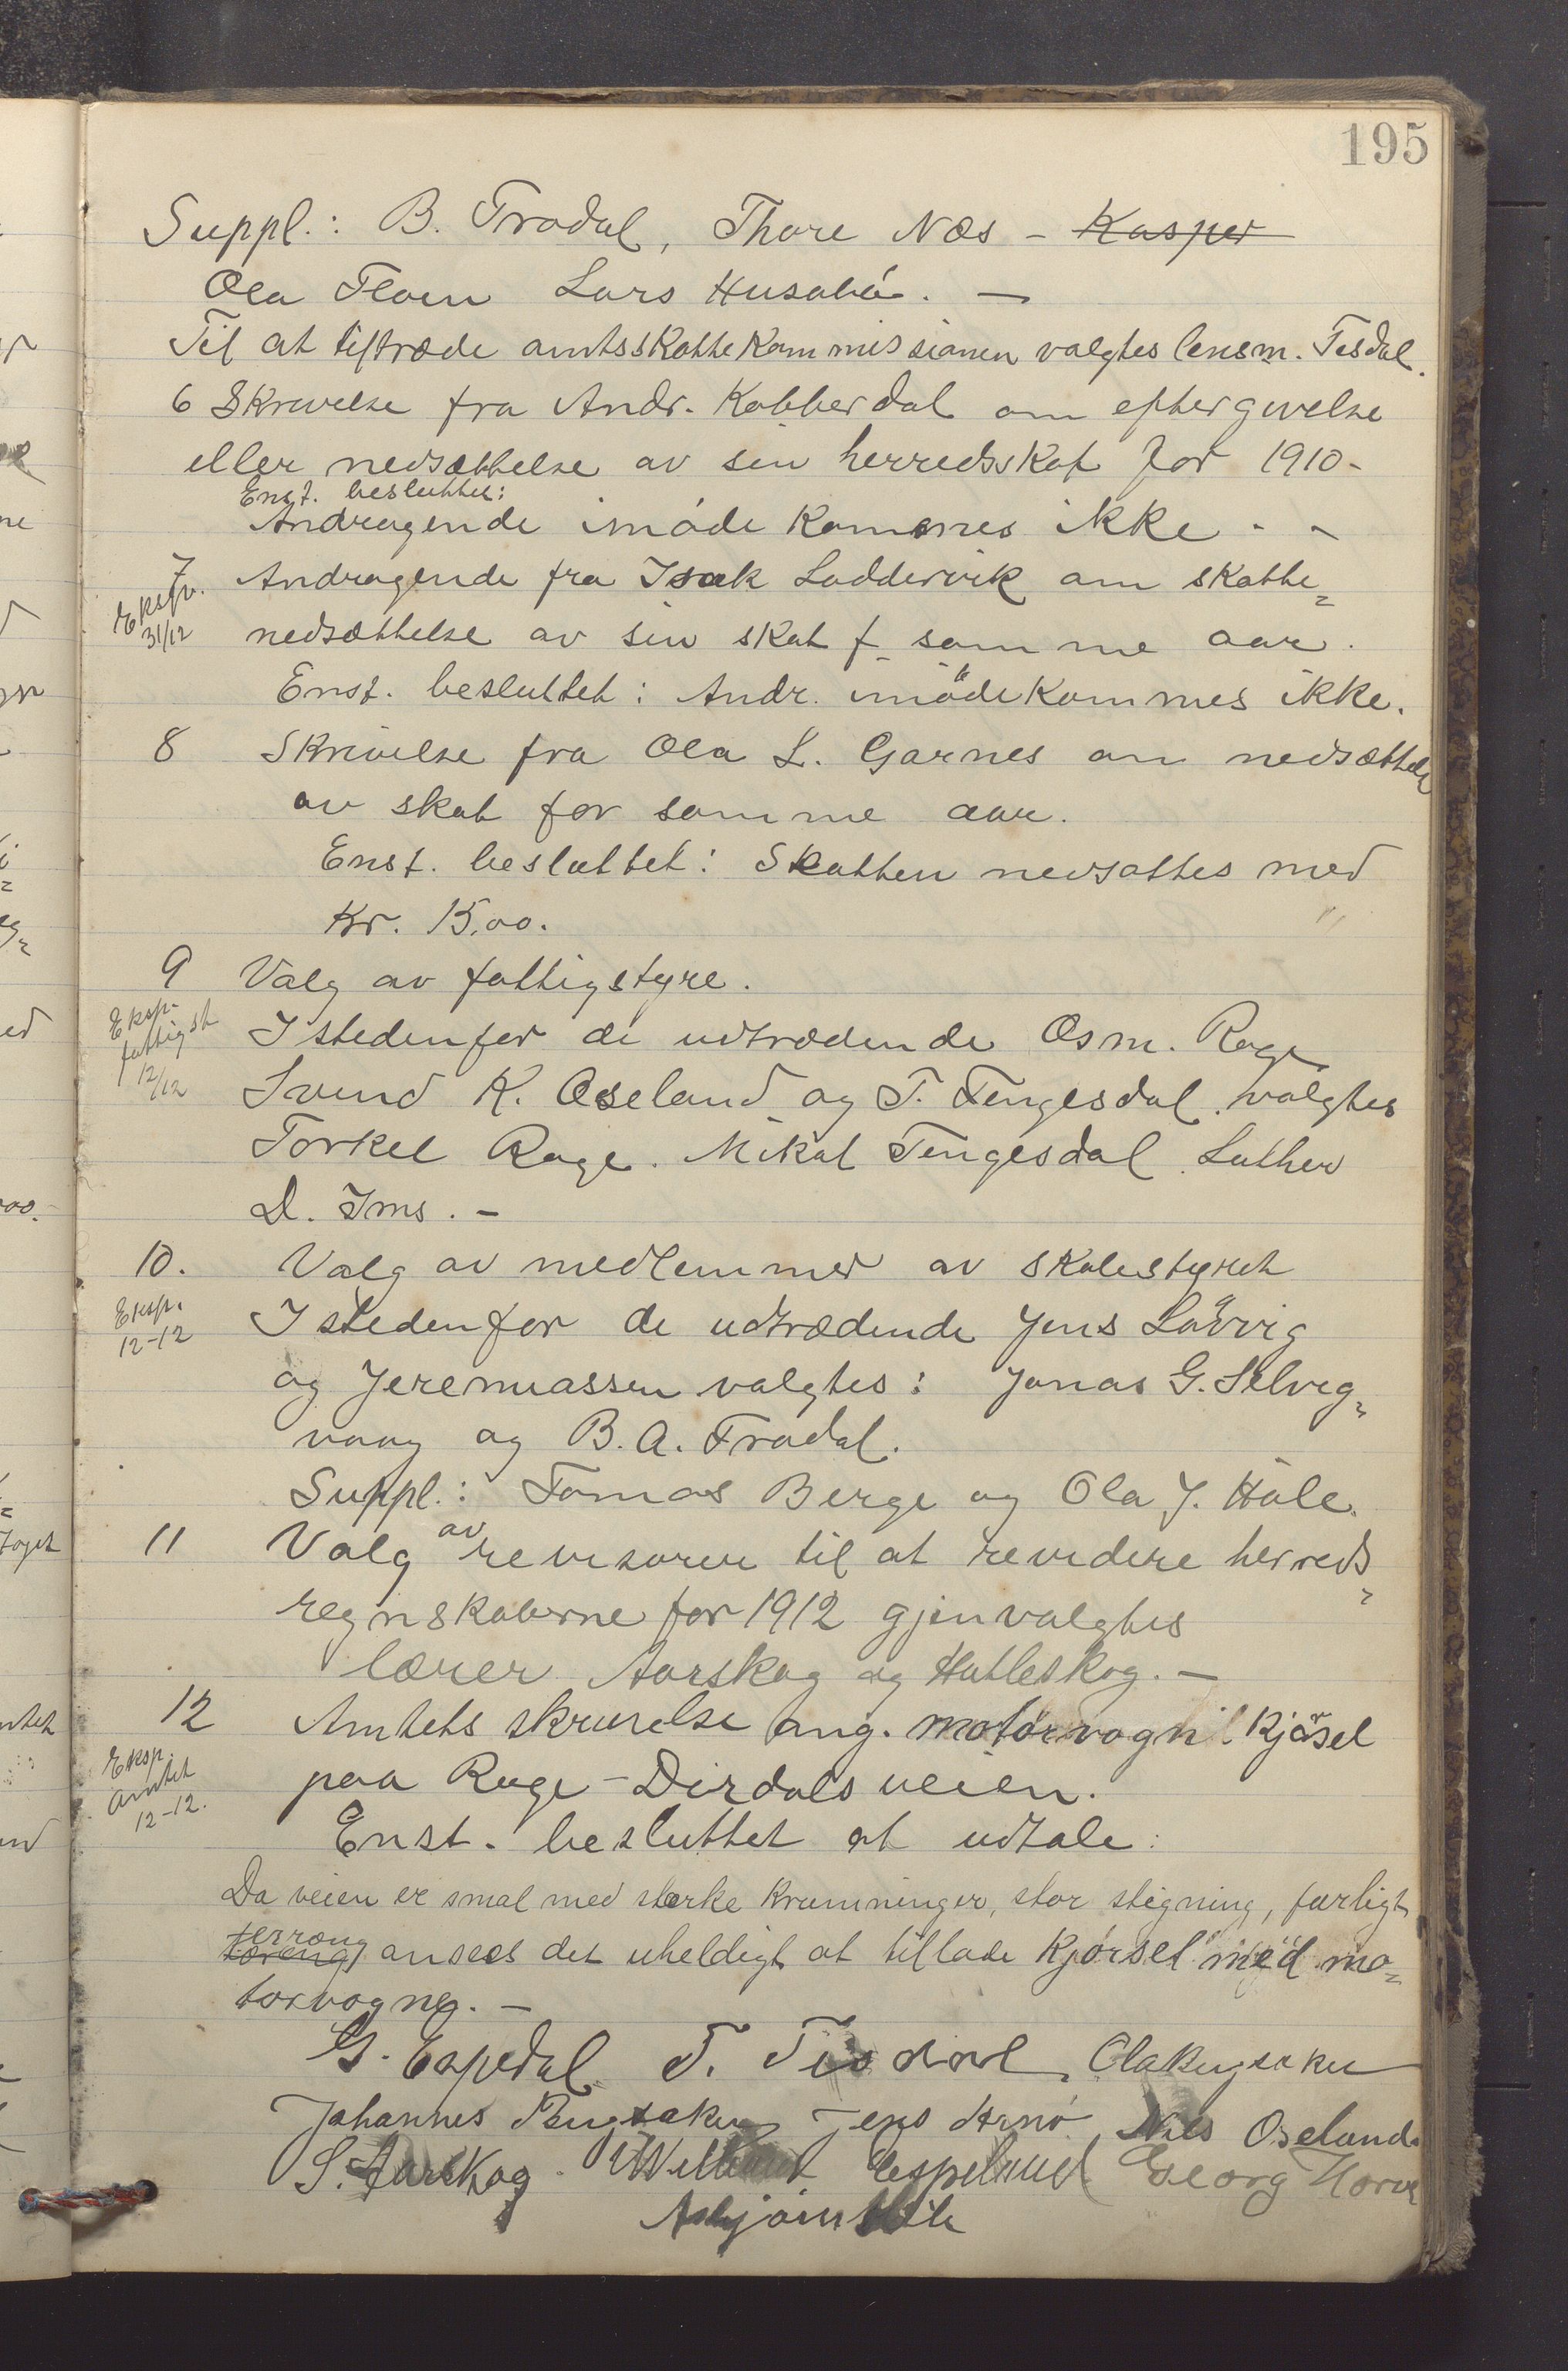 195
Suppl.: B. Frødal, Thore Næs - Kasper
Ola Tloen Lars Husabø. -
Til at tiltræde amtsskattekommissionen valgtes lensm. Tisdal.
6 Skrivelse fra Andr. Kobberdal om eftergivelse
eller nedsættelse av sin herredsskat for 1910-
Enst. besluttet:
Andragende imødekommes ikke. -
7 Andragende fra Isak Loddervik om skatte=
Eksp. 31/12
nedsættelse av sin skat f. samme aar.
Enst. besluttet: Andr. imødekommes ikke.
8 Skrivelse fra Ola L. Garnes om nedsættelse
av skat for samme aar.
Enst. besluttet: Skatten nedsattes med
Kr. 15,00.
9 Valg av fattigstyre.
Eksp. fattigst 12/12
Istedenfor de udtrædende Osm. Rage
Svend K. Oseland og T. Tengesdal valgtes
Torkel Rage. Mikal Tengesdal. Luther
D. Ims. -
10. Valg av medlemmer av skolestyret
Eksp. 12-12
Istedenfor de udtrædende Jens Løvvig
og Jeremiassen valgtes: Jonas G. Selvig=
vaag og B. A. Frødal.
Suppl.: Tomas Berge og Ola J. Høle.
11 Valg av revisorer til at revidere herreds=
regnskaberne for 1912 gjenvalgtes
lærer Aarskog og Hatleskog. -
12 Amtets skrivelse ang. motorvogn kjørsel
Eksp. amtet 12-12.
paa Rage-Dirdalsveien.
Enst. besluttet at udtale:
Da veien er smal med stærke krumninger, stor stigning, farligt
terræng ansees det uheldigt at tillade kjørsel med mo=
torvogne. -
G. Espedal T. Tisdal Ola Bergsaker
Johannes Bergsaker Jens Arnø Nils Oseland
S. Aarskog Espeland Georg Norve
Asbjørn Høle